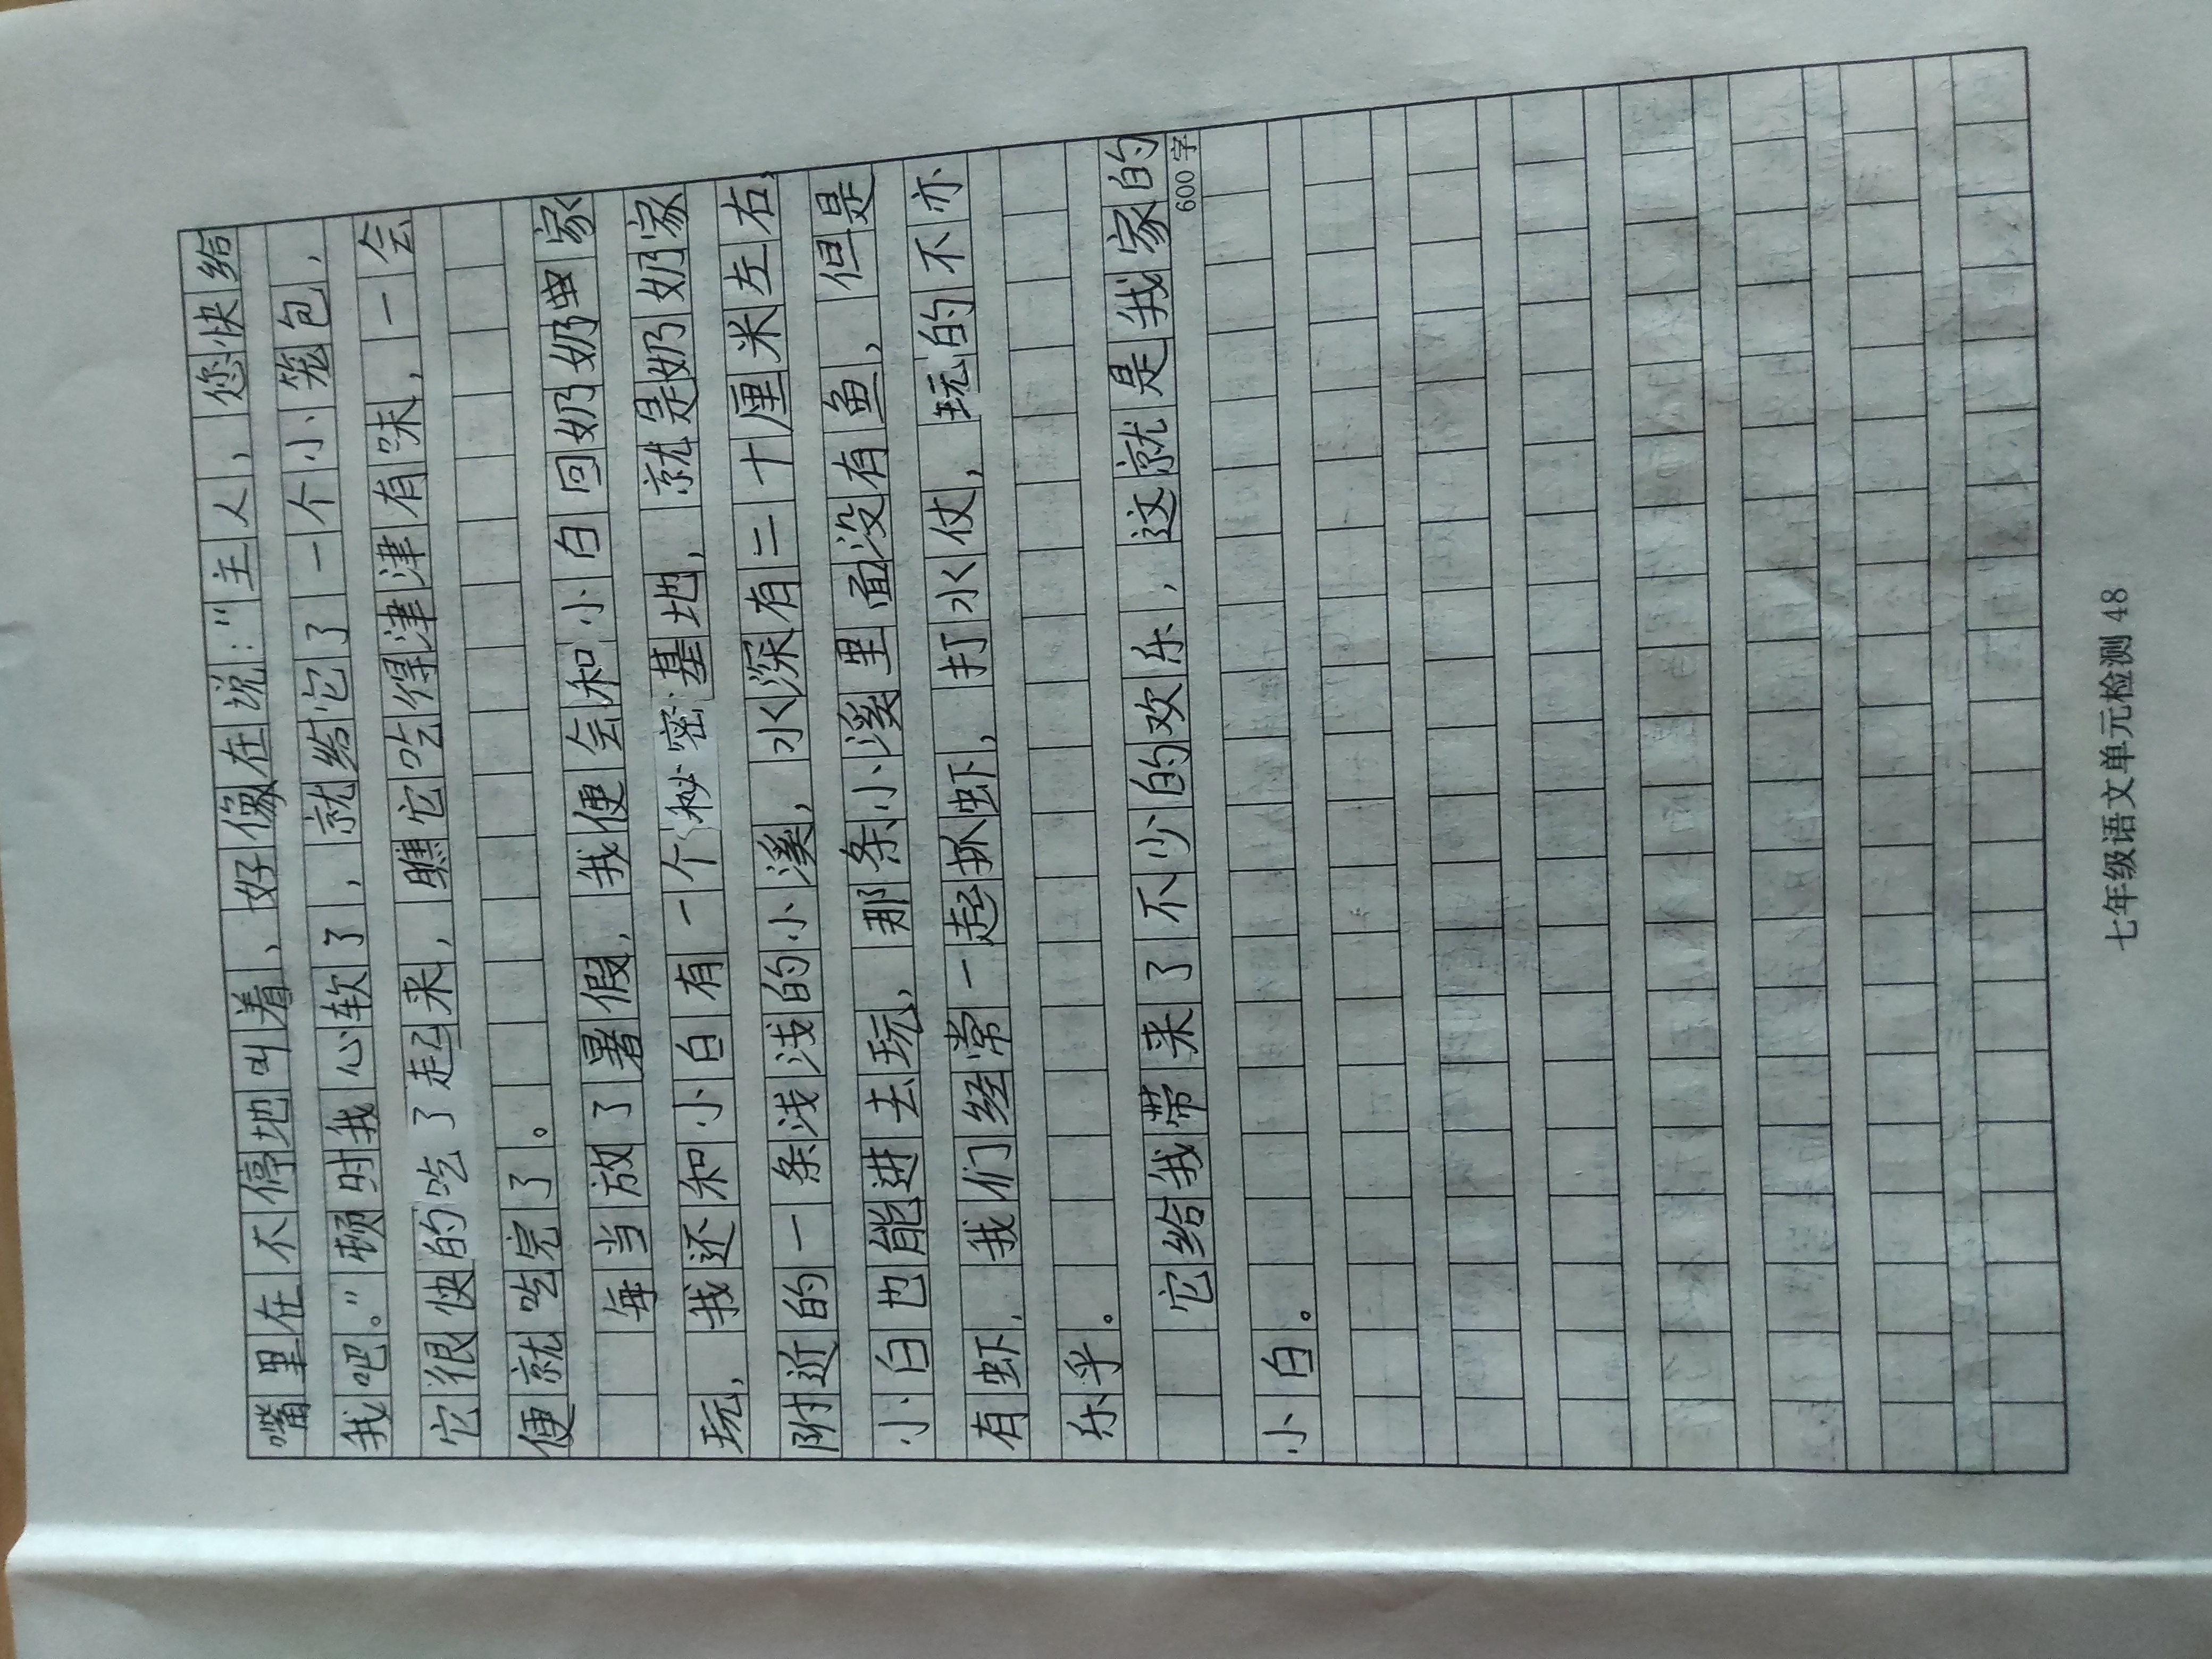 嘴里在不停地叫着，好像在说：“主人，您快给
我吧。”顿时我心软了，就给它了一个小笼包，
它很快的吃了起来，瞧它吃得津津有味，一会
便就吃完了。
每当放了暑假，我便会和小白回奶奶家
玩，我还和小白有一个秘密基地，就是奶奶家
附近的一条浅浅的小溪，水深有二十厘米左右，
小白也能进去玩，那条小溪里面没有鱼，但是
有虾，我们经常一起抓虾，打水仗，玩的不亦
乐乎。
它给我带来了不少的欢乐，这就是我家的
600字
小白。
七年级语文单元检测 48